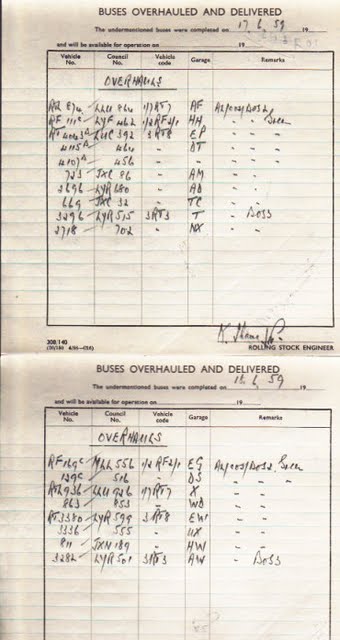 BUSES OVERHAULED AND DELIVERED
The undermentioned buses were completed on 17.6.59 19
and will be available for operation on 19
Vehicle No. Council No. Vehicle code Garage Remarks
OVERHAULS
LLU 864 1/7RT7 AF
RF LYF 462 1/2RF2/1 HH
392 3RT8 EP
4115A 464 " DT
4107A 456 "
723 JXC 86 AM
2696 LYR 680 " AD
669 JXC 32 " TC
3296 LYR 515 3RT3 T "
2718 702 " NX "
308/140
ROLLING STOCK ENGINEER
BUSES OVERHAULED AND DELIVERED
The undermentioned buses were completed on 18.6.59 19
and will be available for operation on 19
Vehicle No. Council No. Vehicle code Garage Remarks
OVERHAULS
RF 169C MLL 556 1/2RF2/1 EG
129C 516 " DS " " "
RTL936 LLU 926 1/7RT7 X " "
863 853 " WD " "
RT3380 LYR 599 3RT8 EW " "
3336 555 " UX " "
811 JXN 189 " HW " "
3282 LYR 501 3RT3 AW "